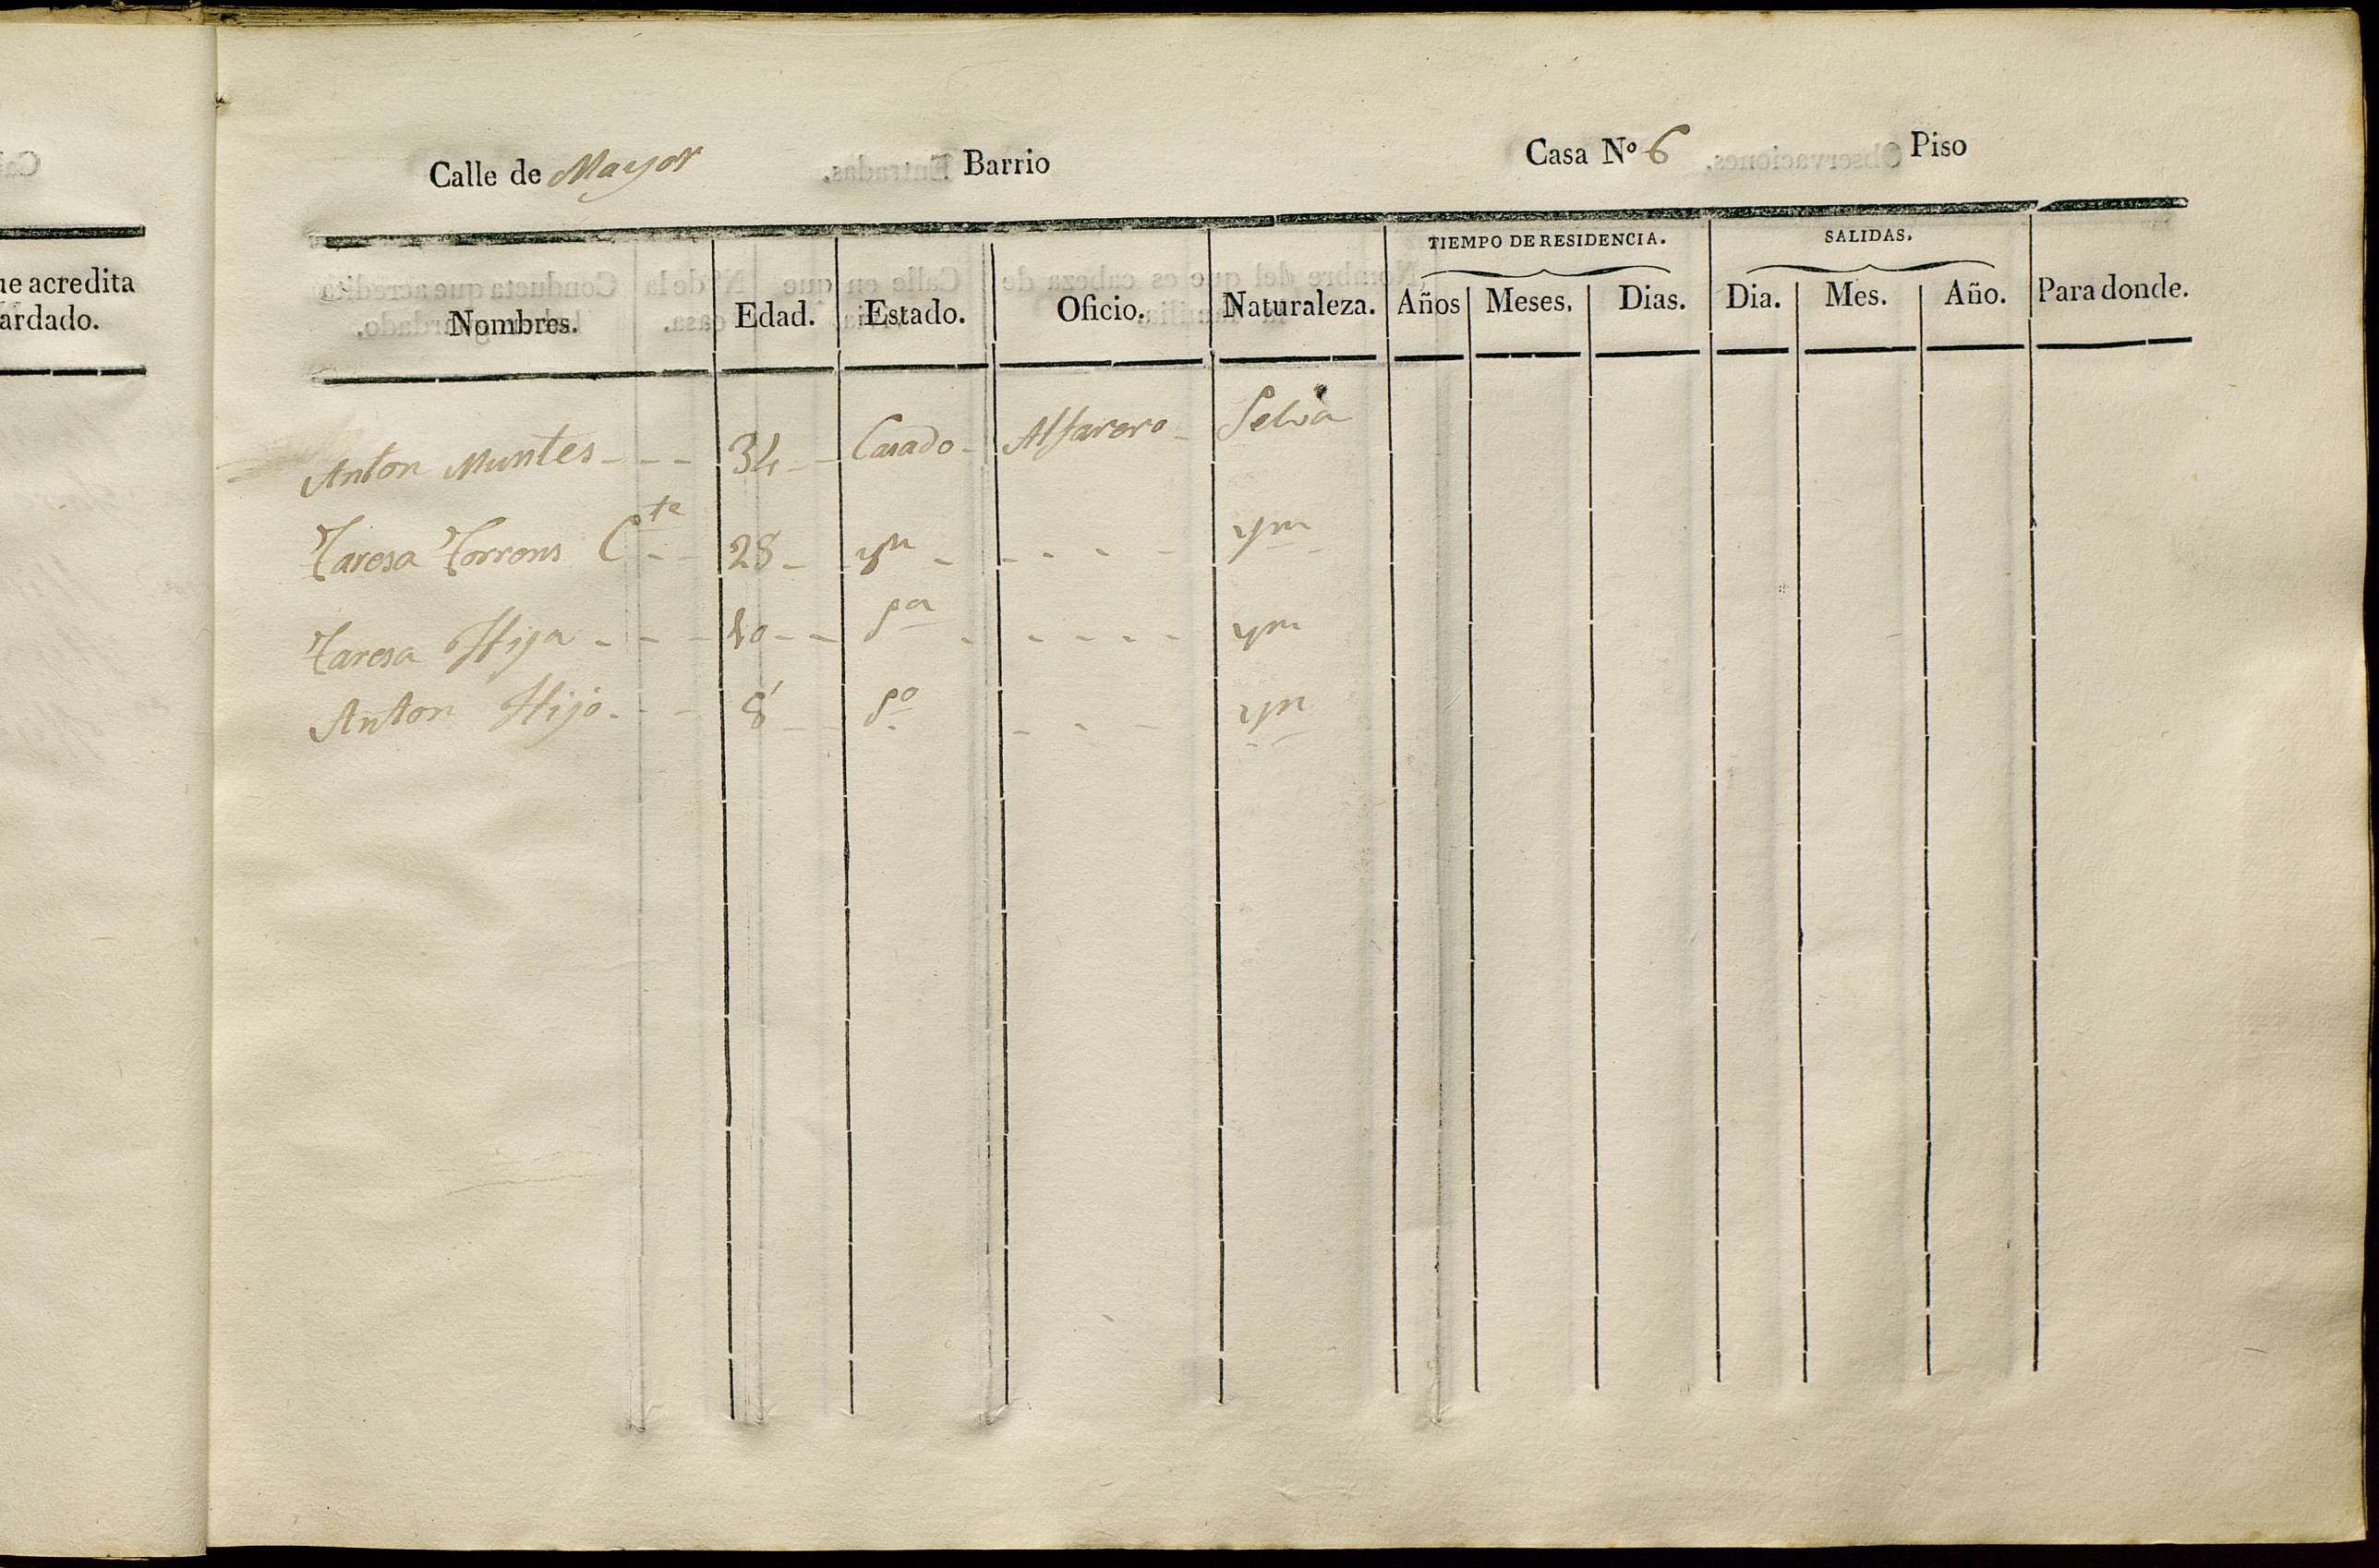 ue acredita
ardado.
Calle de Mayor Barrio Casa Nº 6 Piso
TIEMPO DE RESIDENCIA. SALIDAS.
Nombres. Edad. Estado. Oficio. Naturaleza. Años Meses. Dias. Dia. Mes. Año. Para donde.
Anton Muntes - - - 34 - - Casado - Alfarero - Selva
Taresa Torrens Cte - - 28 - yn - - - - - ym
Taresa Hija - - - - 10 - - Sa - - - - - ym
Anton Hijo - - - 8 - - So - - - yn